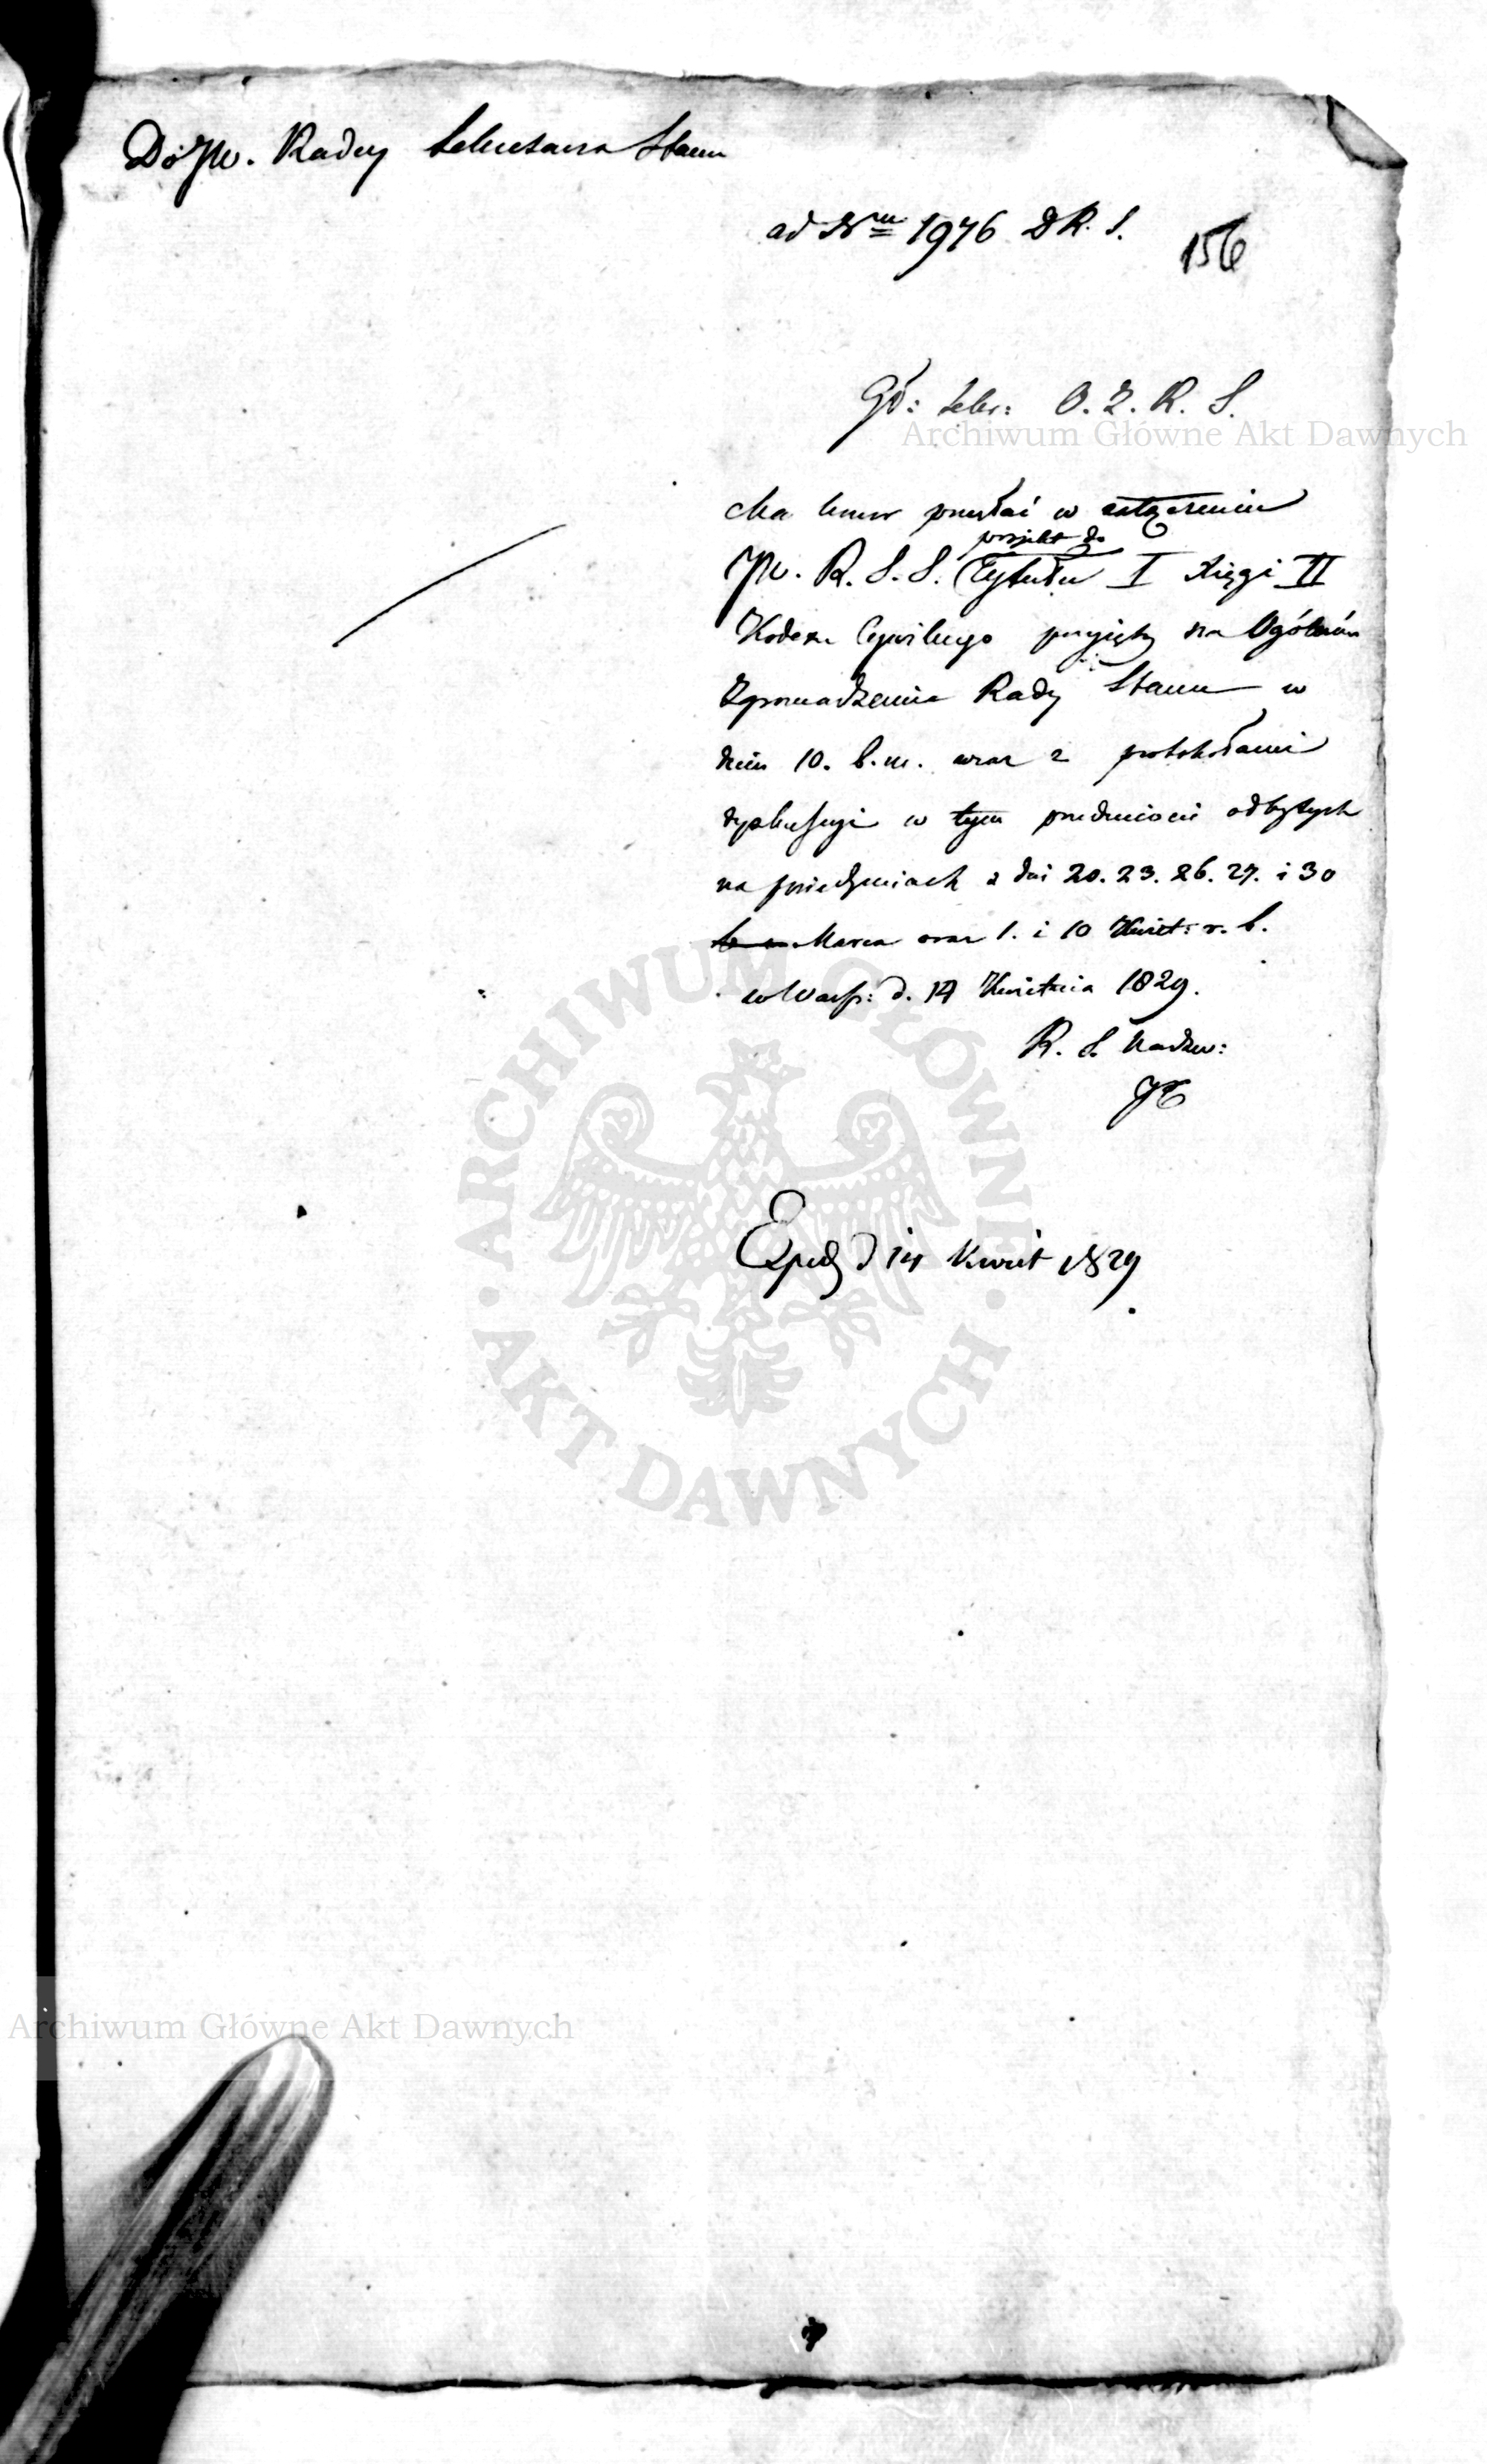 Do JW. Radcy Sekretarza Stanu
ad Nrum 1976 D R. S.
156
Gł: Sekr: O. Z. R. S.
Ma honor przesłać w załączeniu
projekt do
JW. R. S. S. Tytułu I Księgi II
Kodexu Cywilnego przyjęty na Ogólném
Zgromadzeniu Rady Stanu w
dniu 10. b. m. wraz z protokołami
dyskussyi w tym przedmiocie odbytych
na posiedzeniach z dni 20. 23. 26. 27. i 30
Marca oraz 1. i 10 Kwiet: r. b.
w Warsz: d. 14 Kwietnia 1829.
R. S. Nadzw:
Exped d 14 Kwiet 1829
Archiwum Główne Akt Dawnych
ARCHIWUM GŁÓWNE · AKT DAWNYCH ·
Archiwum Główne Akt Dawnych